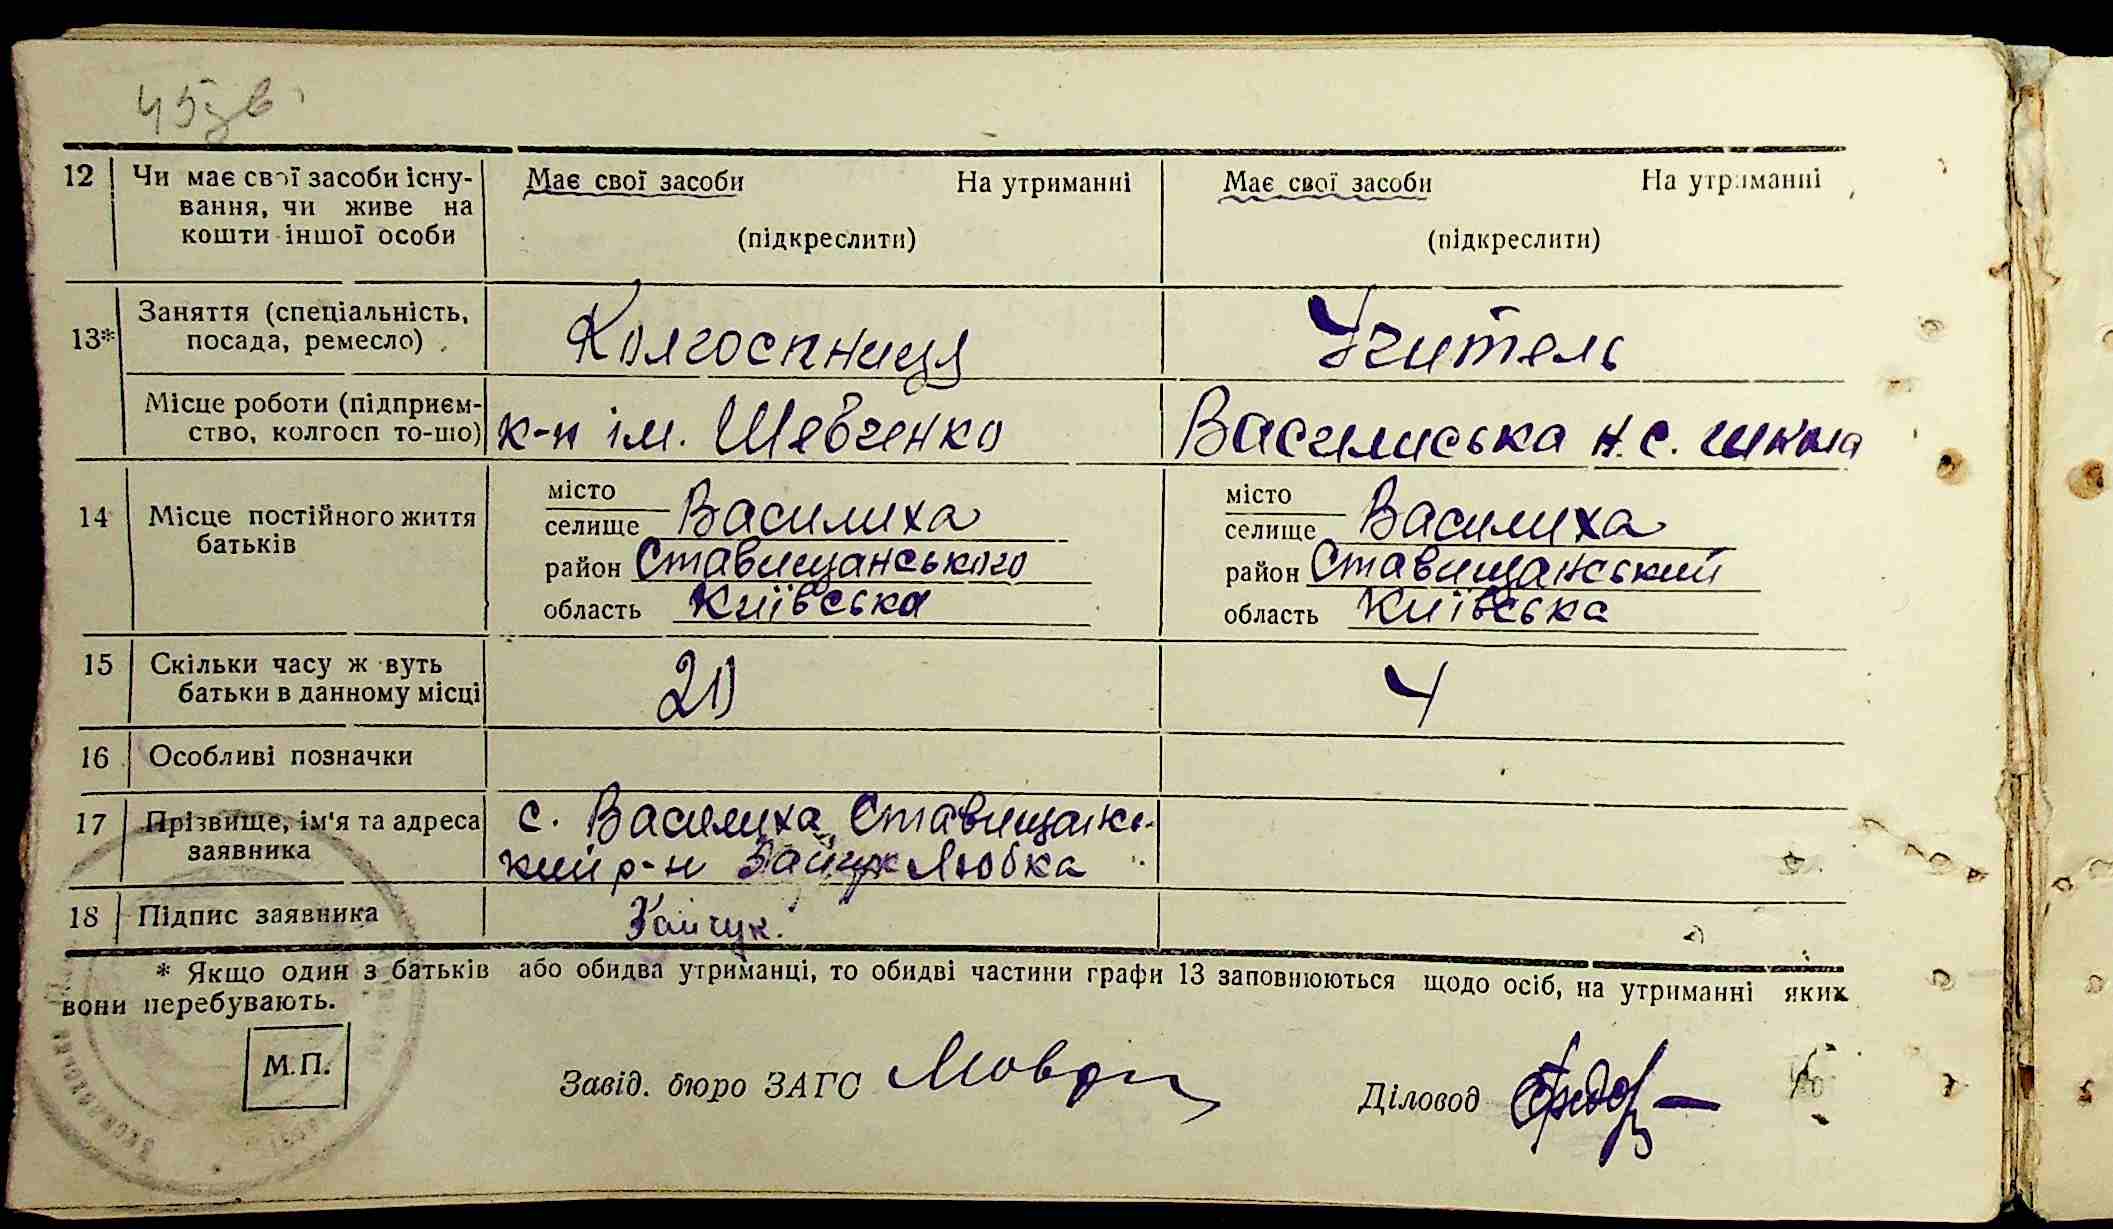 12 Чи має свої засоби існу- Має свої засоби На утриманні Має свої засоби На утриманні
вання, чи живе на
кошти іншої особи (підкреслити) (підкреслити)
13* Заняття (спеціальність,
посада, ремесло) Колгоспниця Учитель
Місце роботи (підприєм-
ство, колгосп то-що) к-п ім. Шевченко Василиська н. с. школа
14 Місце постійного життя
батьків
місто місто
селище Василиха селище Василиха
район Ставищанського район Ставищанський
область Київська область Київська
15 Скільки часу ж вуть
батьки в данному місці 20 4
16 Особливі позначки
17 Прізвище, ім'я та адреса с. Василиха Ставищанс-
заявника кий р-н Зайчук Любка
18 Підпис заявника Зайчук.
* Якщо один з батьків або обидва утриманці, то обидві частини графи 13 заповнюються щодо осіб, на утриманні яких
вони перебувають.
М.П.
Завід. бюро ЗАГС Діловод